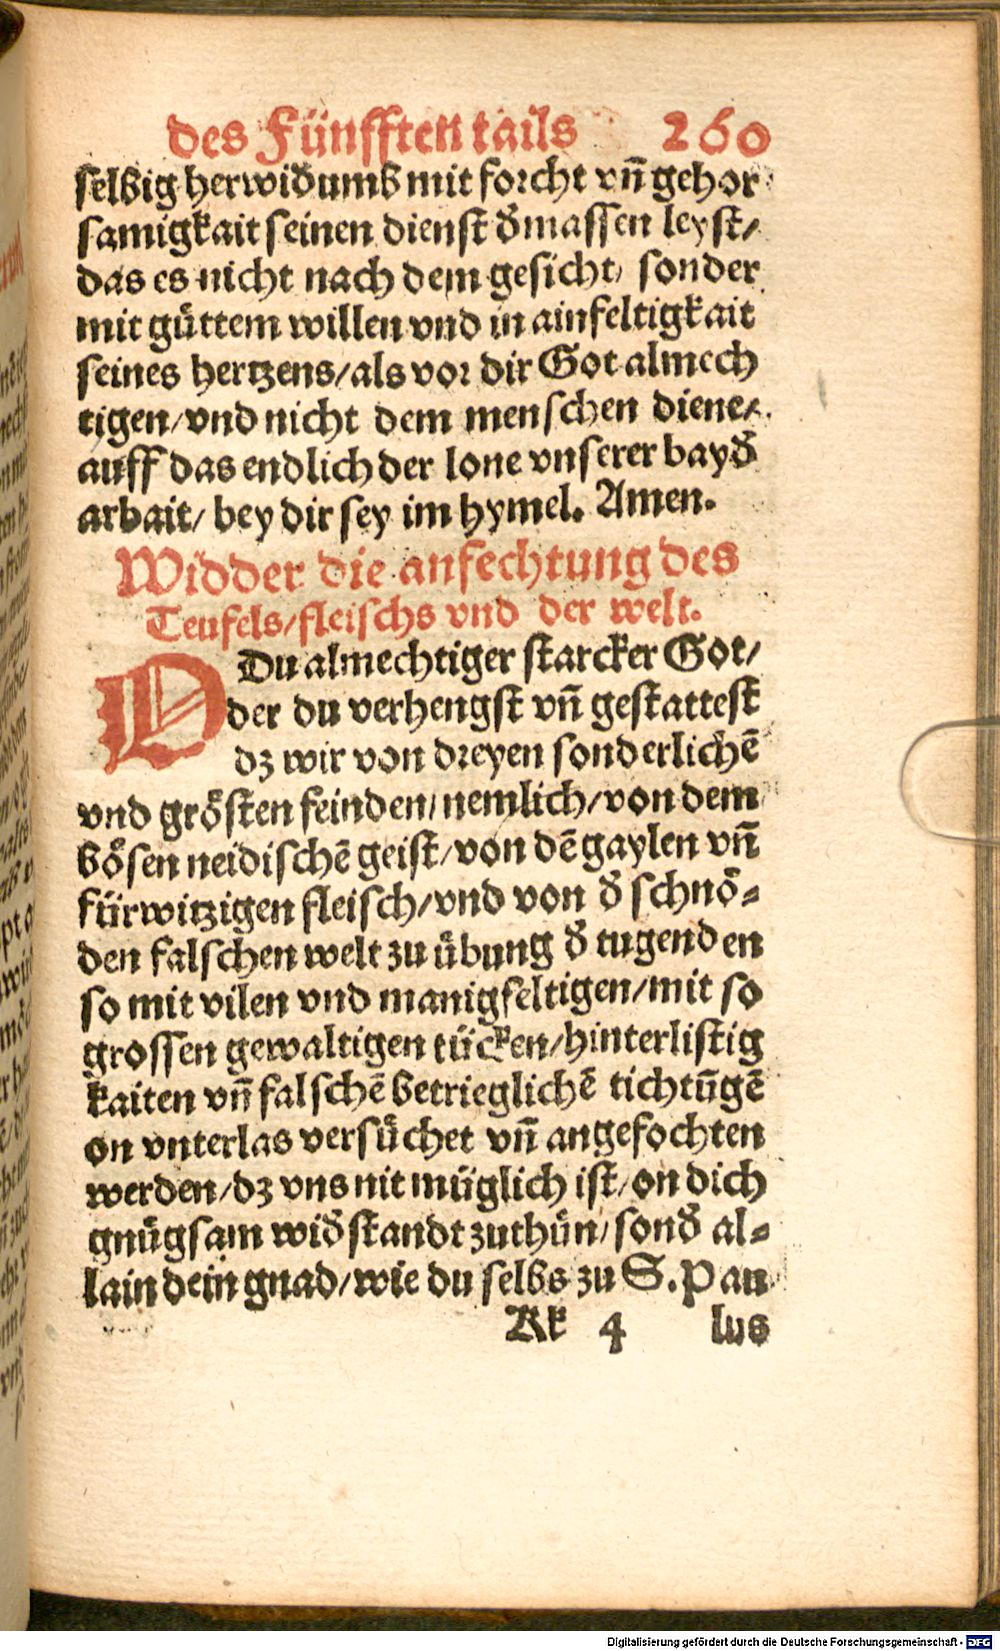 des Fünfften tails 260
selbig herwid̄umb mit forcht vn̄ gehor
samigkait seinen dienst d̄massen leyst/
das es nicht nach dem gesicht/ sonder
mit gůttem willen vnd in ainfeltigkait
seines hertzens/als vor dir Got almech
tigen/vnd nicht dem menschen diene/
auff das endlich der lone vnserer bayd̄
arbait/ bey dir sey im hymel. Amen.
Widder die anfechtung des
Teufels/fleischs vnd der welt.
O Du almechtiger starcker Got/
der du verhengst vn̄ gestattest
dz wir von dreyen sonderlichē
vnd grösten feinden/nemlich/von dem
bösen neidischē geist/von dē gaylen vn̄
fürwitzigen fleisch/vnd von d̄ schnö⸗
den falschen welt zu übung d̄ tugenden
so mit vilen vnd manigfeltigen/mit so
grossen gewaltigen tücken/hinterlistig
kaiten vn̄ falschē betrieglichē tichtūgē
on vnterlas versůchet vn̄ angefochten
werden/dz vns nit müglich ist/on dich
gnůgsam wid̄standt zuthůn/sond̄ al⸗
lain dein gnad/wie du selbs zu S.Pau
Kk 4 lus
Digitalisierung gefördert durch die Deutsche Forschungsgemeinschaft - DFG